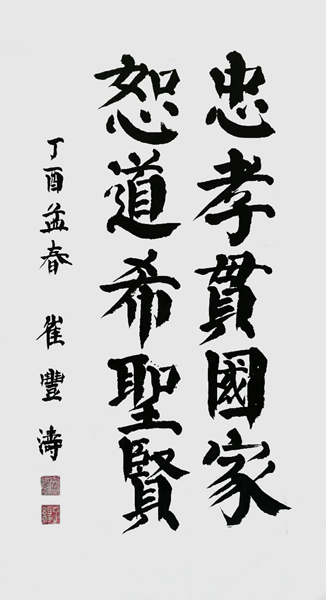 忠孝貫國家
恕道希聖賢
丁酉孟春 崔豐濤